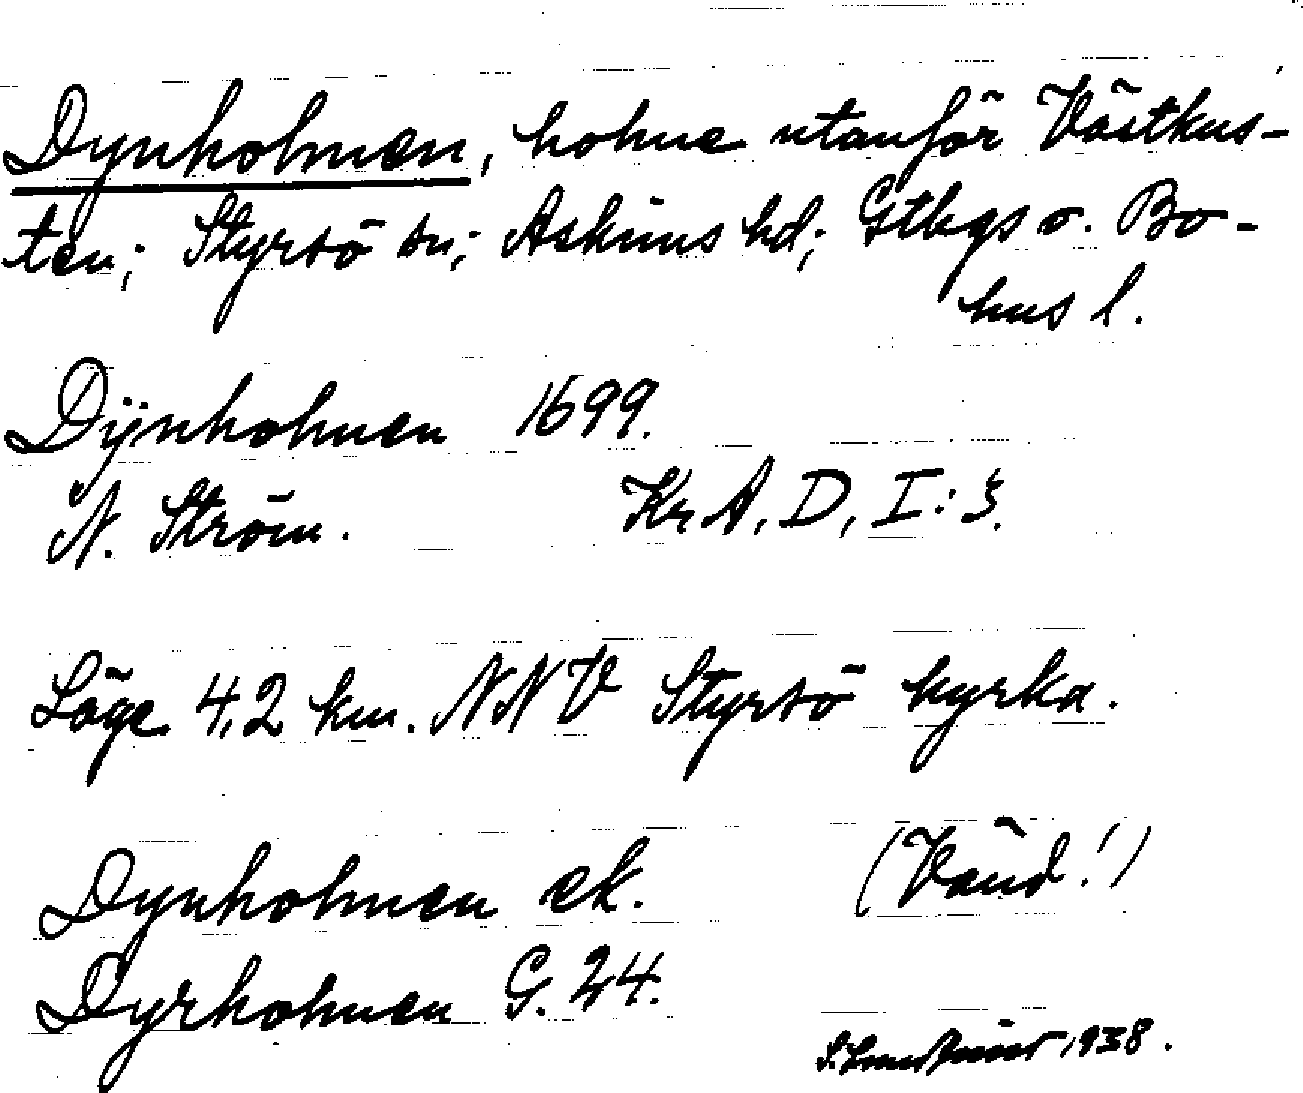 Dynholmen, holme utanför Västkus-
ten; Styrsö sn; Askims hd; Gtbgs o. Bo-
hus l.
Dÿnholmen 1699.
N. Ström. KrA, D, I: 3.
Läge 4,2 km. NNV Styrsö kyrka.
Dynholmen ek. (Vänd!)
Dyrholmen G. 24.
1938.